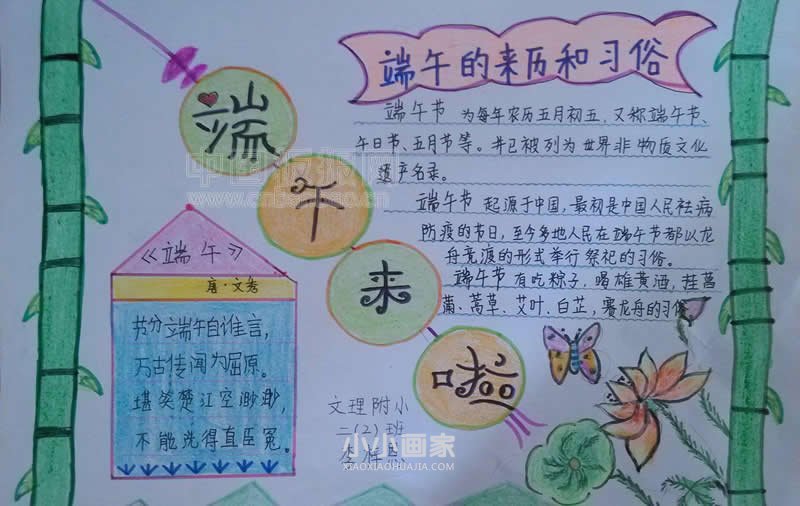 端午的来历和习俗
端午节 为每年农历五月初五，又称端午节、
午日节、五月节等。并已被列为世界非物质文化
遗产名录。
端午节 起源于中国，最初是中国人民祛病
防疫的节日，至今多地人民在端午节都以龙
舟竞渡的形式举行祭祀的习俗。
端午节 有吃粽子，喝雄黄酒，挂菖
蒲、蒿草、艾叶、白芷，赛龙舟的习俗
端
午
来
啦
《端午》
唐·文秀
节分端午自谁言，
万古传闻为屈原。
堪笑楚江空渺渺，
不能洗得直臣冤。
文理附小
二(2)班
李
小小画家
XIAOXIAOHUAJIA.COM